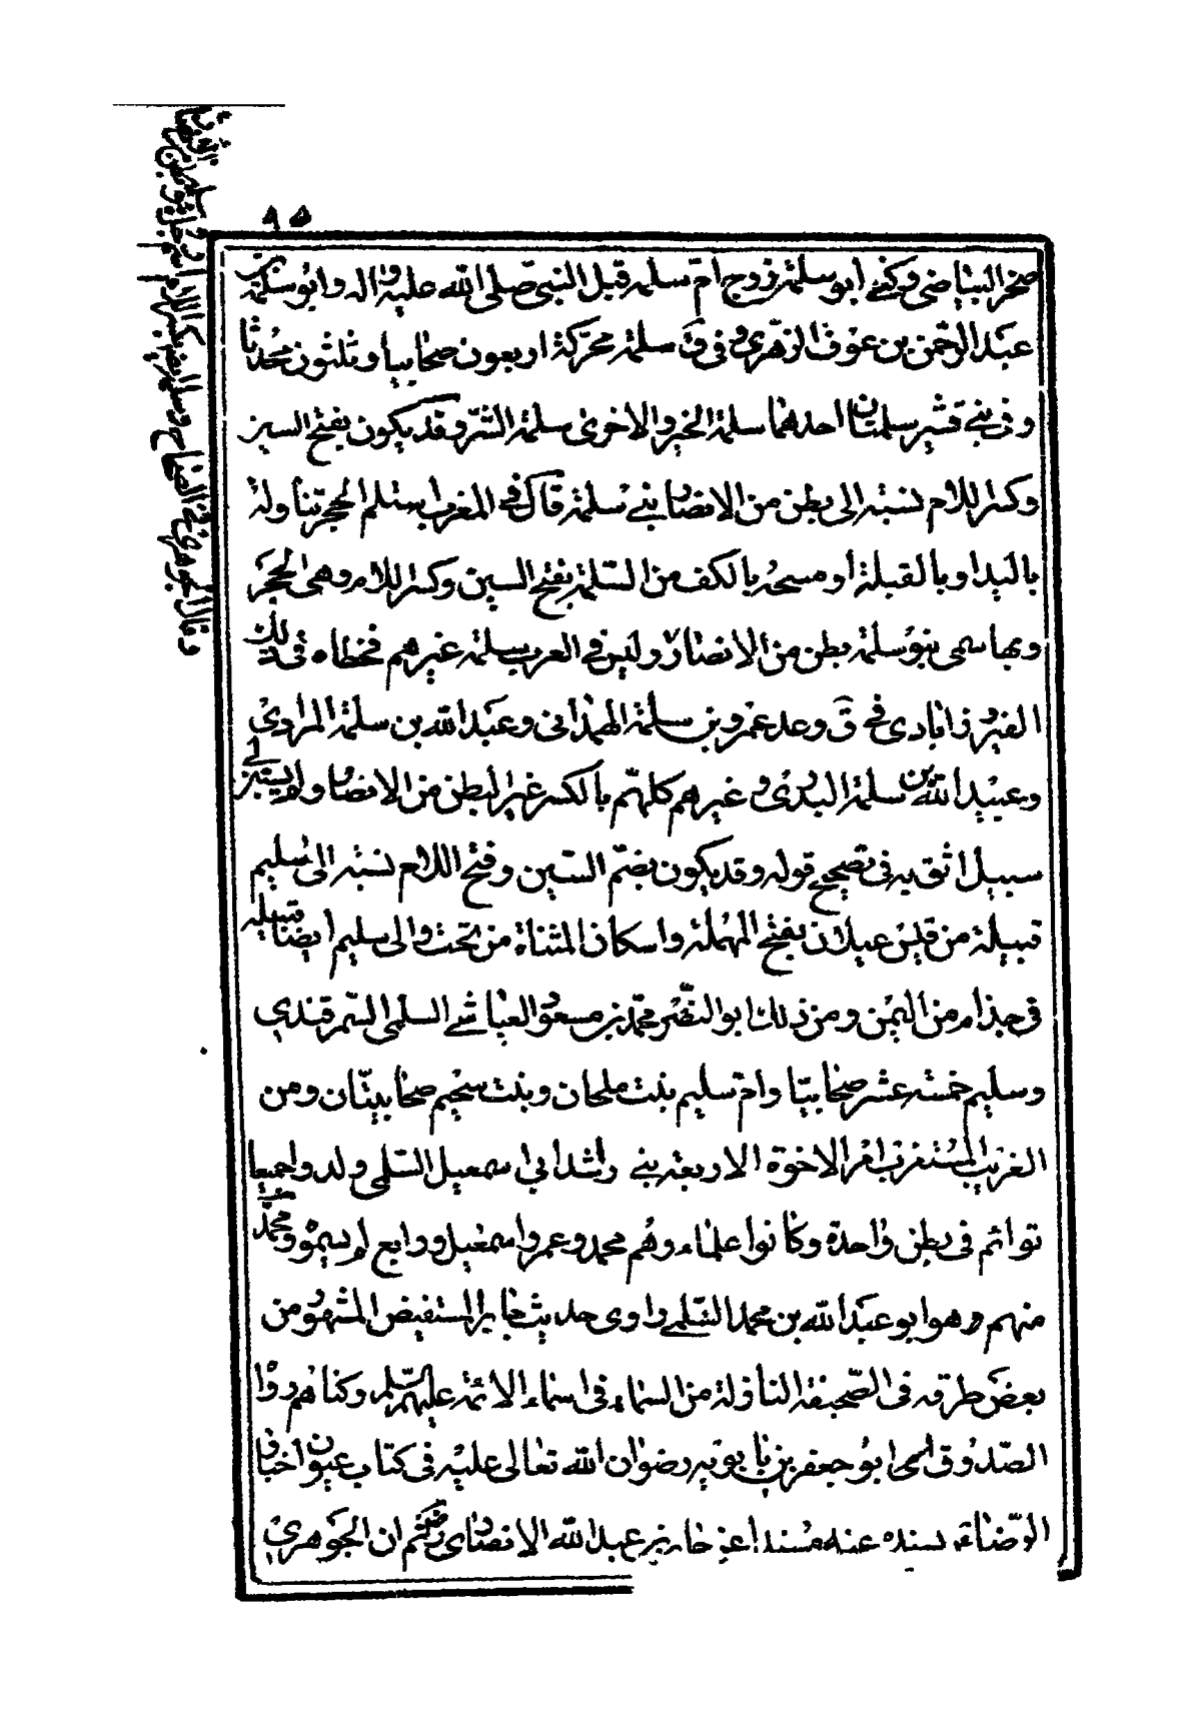 ٩٥
صخر البياضى وكنى أبو سلمة زوج امّ سلمه قبل النبىّ صلى الله عليه واله وابو سلمة بن
عبد الرحمن بن عوف الزهرى وفى ق سلمة محركة اربعون صحابيا وثلثون محدثا
وفى بنى قشير سلمتان احدهما سلمة الخير والاخرى سلمة الشرّ وقد يكون بفتح السين
وكسر اللام نسبة الى بطن من الانصار بنى سلمة قال فى المغرب استلم الحجر تناوله
باليد او بالقبلة أو مسحه بالكف من السّلمة بفتح السين وكسر اللام وهى الحجر
وبها سمى بنو سلمة بطن من الانصار وليس فى العرب سلمة غيرهم فخطاه فى ذلك
الفيروزابادى فى ق وعد عمرو بن سلمة الهمدانى وعبد الله بن سلمة المرادى
وعبيد الله بن سلمة البدرى وغيرهم كلهم بالكسر غير البطن من الانصار ولم يستبن لى
سبيل اثق به فى تصحيح قوله وقد يكون بضم السّين وفتح اللام نسبة الى سُليم
قبيلة من قيس عيلان بفتح المهملة واسكان المثناة من تحت والى سليم ايضا قبيله
فى جذام من اليمن ومن ذلك ابو النضر محمّد بن مسعود العياشى السلمى السّمرقندى
وسليم خمسة عشر صحابيّا وامّ سليم بنت ملحان وبنت سحيم صحابيّتان ومن
الغريب المستغرب امر الاخوة الاربعة بنى راشد ابى اسمعيل السّلمى ولدوا جميعا
توائم فى بطن واحدة وكانوا علماء وهم محمد وعمر واسمعيل ورابع لم يسمّوه ومحمد
منهم وهو ابو عبد الله بن محمد السّلمى راوى حديث جابر المستفيض المشهور من
بعض طرقه فى الصّحيفة النازلة من السماء فى اسماء الائمة عليهم السّلم وكناهم روا
الصّدوق ابو جعفر بن بابويه رضوان الله تعالى عليه فى كتاب عيون اخبار
الرّضا بسنده عنه مسندا عن جابر بن عبد الله الانصارى ثم ان الجوهرى
وقال الجوهرى فى الصحاح وسلمة بكسر اللام